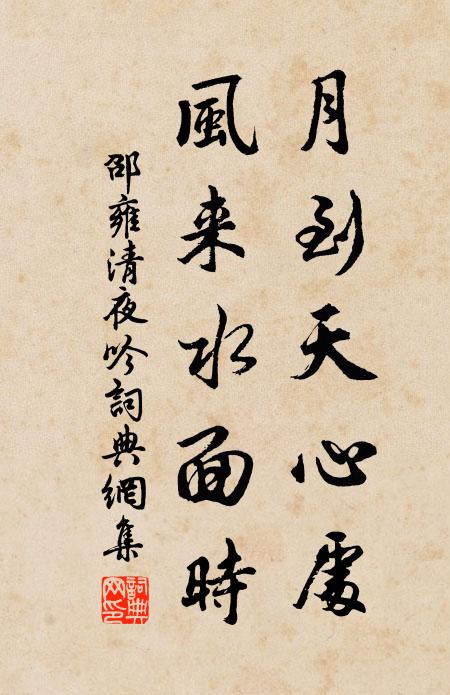 月到天心處
風来水面時
邵雍清夜吟詞典網集
詞典網印